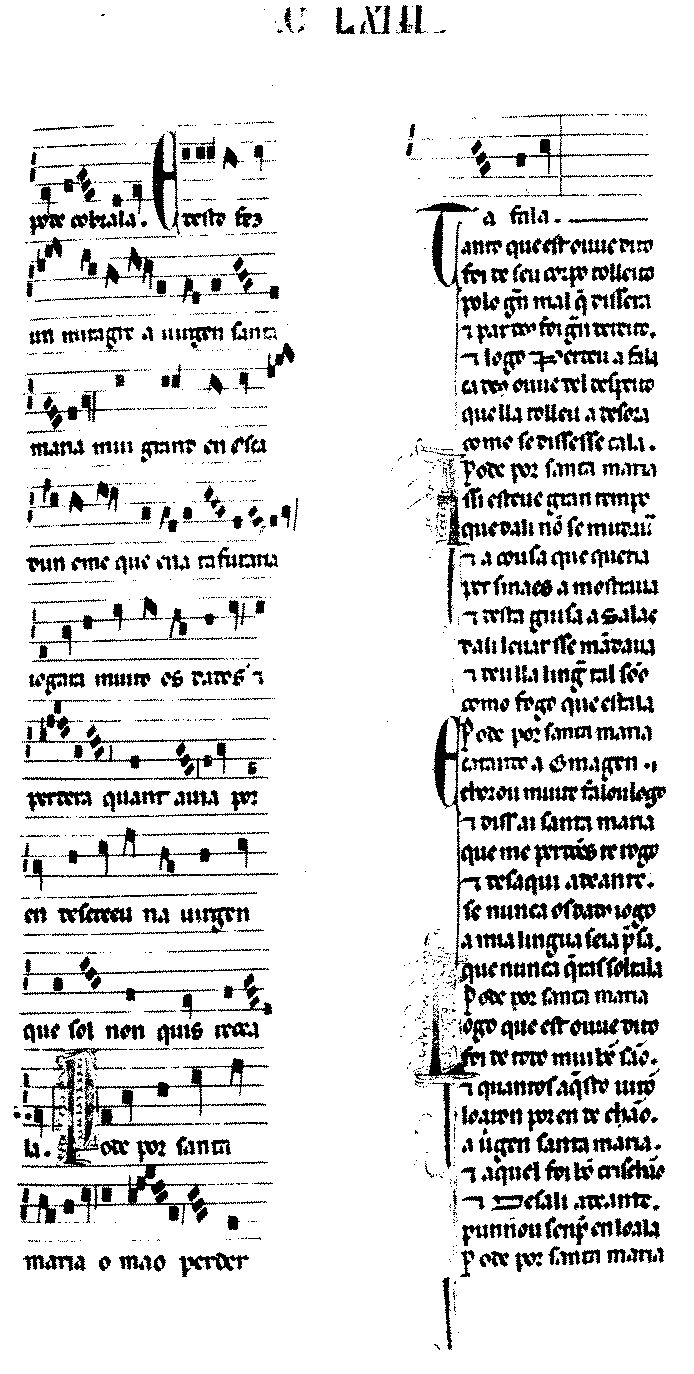 C LXIII
pode cobrala. E desto fez
un miragre a uirgen santa
maria mui grand en esta
dun ome que era tafur
iogara muito os dados ⁊
perdera quant auia por
en descreeu na uirgen
que sol non quis
la. Pode por santa
maria o mao perder
a fala.
Tanto que est ouue dito
foi de seu corpo tolleito
polo gñ mal q̃ dissera
⁊ par deus foi gñ dereito.
⁊ logo perdeu a fala
ca deus ouue del despeito
que lla tolleu a desora
como se dissesse cala.
Pode por santa maria
ssi esteue gran tempo
que dali nõ se mudaua
⁊ a cousa que queria
per sinaes a mostraua
⁊ desta guisa a Salas
dali leuar sse mãdaua
⁊ deulla ling̃ tal sõo
como fogo que estala
Pode por santa maria
E catando a omagen .
chorou muito falou logo
⁊ diss ai santa maria
que me perdões te rogo
⁊ desaqui adeante.
se nunca os dados iogo
a mia lingua seia p̃sa.
que nunca q̃ras soltala
Pode por santa maria
ogo que est ouue dito
foi de todo mui bẽ são.
⁊ quantos aq̃sto uirõ
loaron poren de chão.
a uirgen santa maria.
⁊ aquel foi bõ crischão
⁊ desali adeante.
punnou senp̃ en loala
Pode por santa maria